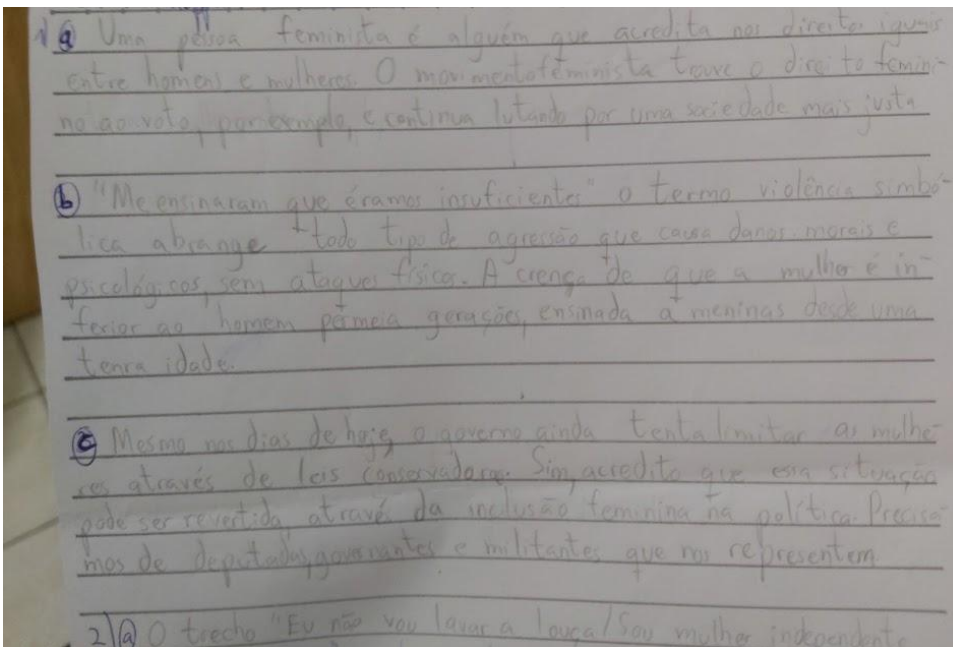 1 a Uma pessoa feminista é alguém que acredita nos direitos iguais
entre homens e mulheres. O movimento feminista trouxe o direito femini-
no ao voto, por exemplo, e continua lutando por uma sociedade mais justa
b "Me ensinaram que éramos insuficientes" o termo violência simbó-
lica abrange todo tipo de agressão que causa danos morais e
psicológicos, sem ataques físicos. A crença de que a mulher é in-
ferior ao homem permeia gerações, ensinada a meninas desde uma
tenra idade.
c Mesmo nos dias de hoje, o governo ainda tenta limitar as mulhe-
res através de leis conservadoras. Sim, acredito que essa situação
pode ser revertida através da inclusão feminina na política. Precisa-
mos de deputadas, governantes e militantes que nos representem.
2) a O trecho "Eu não vou lavar a louça/Sou mulher independente